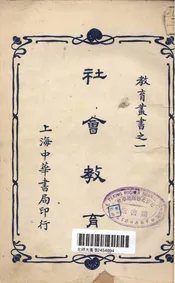 教育叢書之一
社會教育
上海中華書局印行